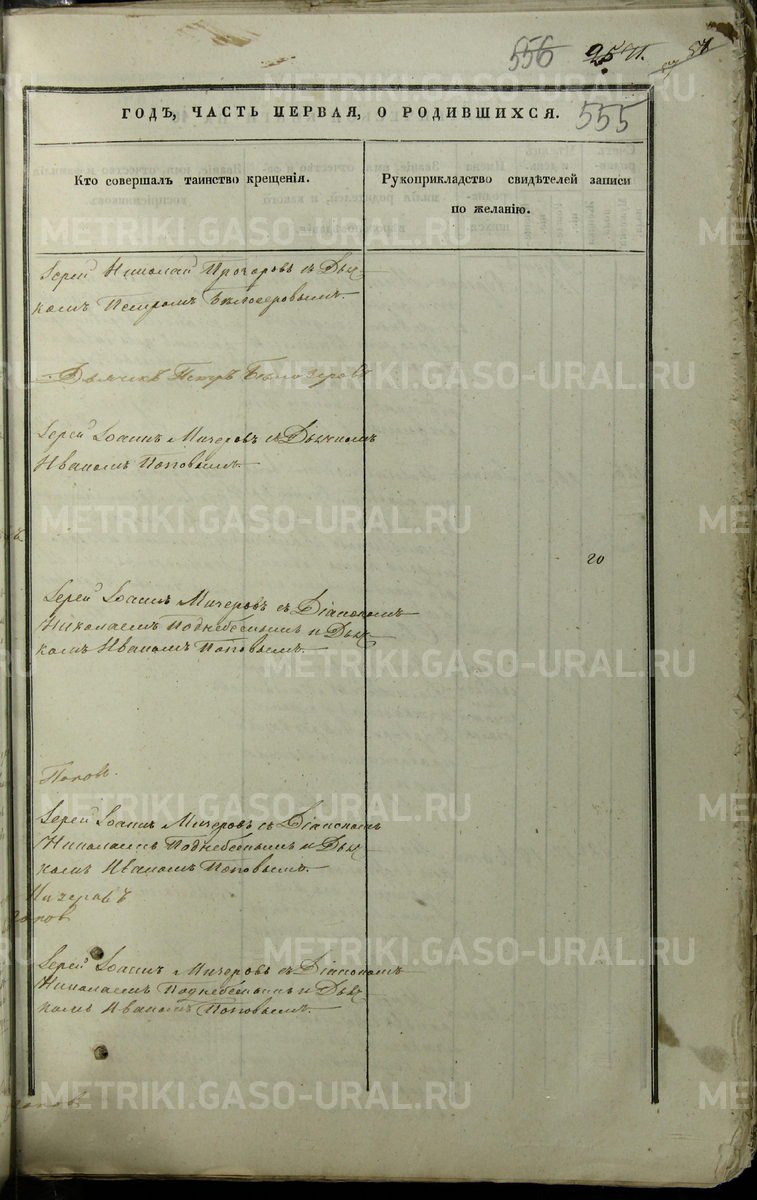 556
555
ГОДЪ, ЧАСТЬ ПЕРВАЯ, О РОДИВШИХСЯ.
Кто совершалъ таинство крещенія.
Рукоприкладство свидѣтелей записи
по желанію.
Іерей Николай Прозоровъ съ Дьяч-
комъ Петромъ Бѣлозеровымъ.
Дьячекъ Петръ Бѣлозеровъ
Іерей Іоаннъ Мичеровъ съ Дьячкомъ
Иваномъ Поповымъ.
го
Іерей Іоаннъ Мичеровъ съ Діакономъ
Николаемъ Поднебеснымъ и Дьяч-
комъ Иваномъ Поповымъ.
Попов.
Іерей Іоаннъ Мичеровъ съ Діакономъ
Николаемъ Поднебеснымъ и Дьяч-
комъ Иваномъ Поповымъ.
Мичеровъ
Попов
Іерей Іоаннъ Мичеровъ съ Діакономъ
Николаемъ Поднебеснымъ и Дьяч-
комъ Иваномъ Поповымъ.
METRIKI.GASO-URAL.RU